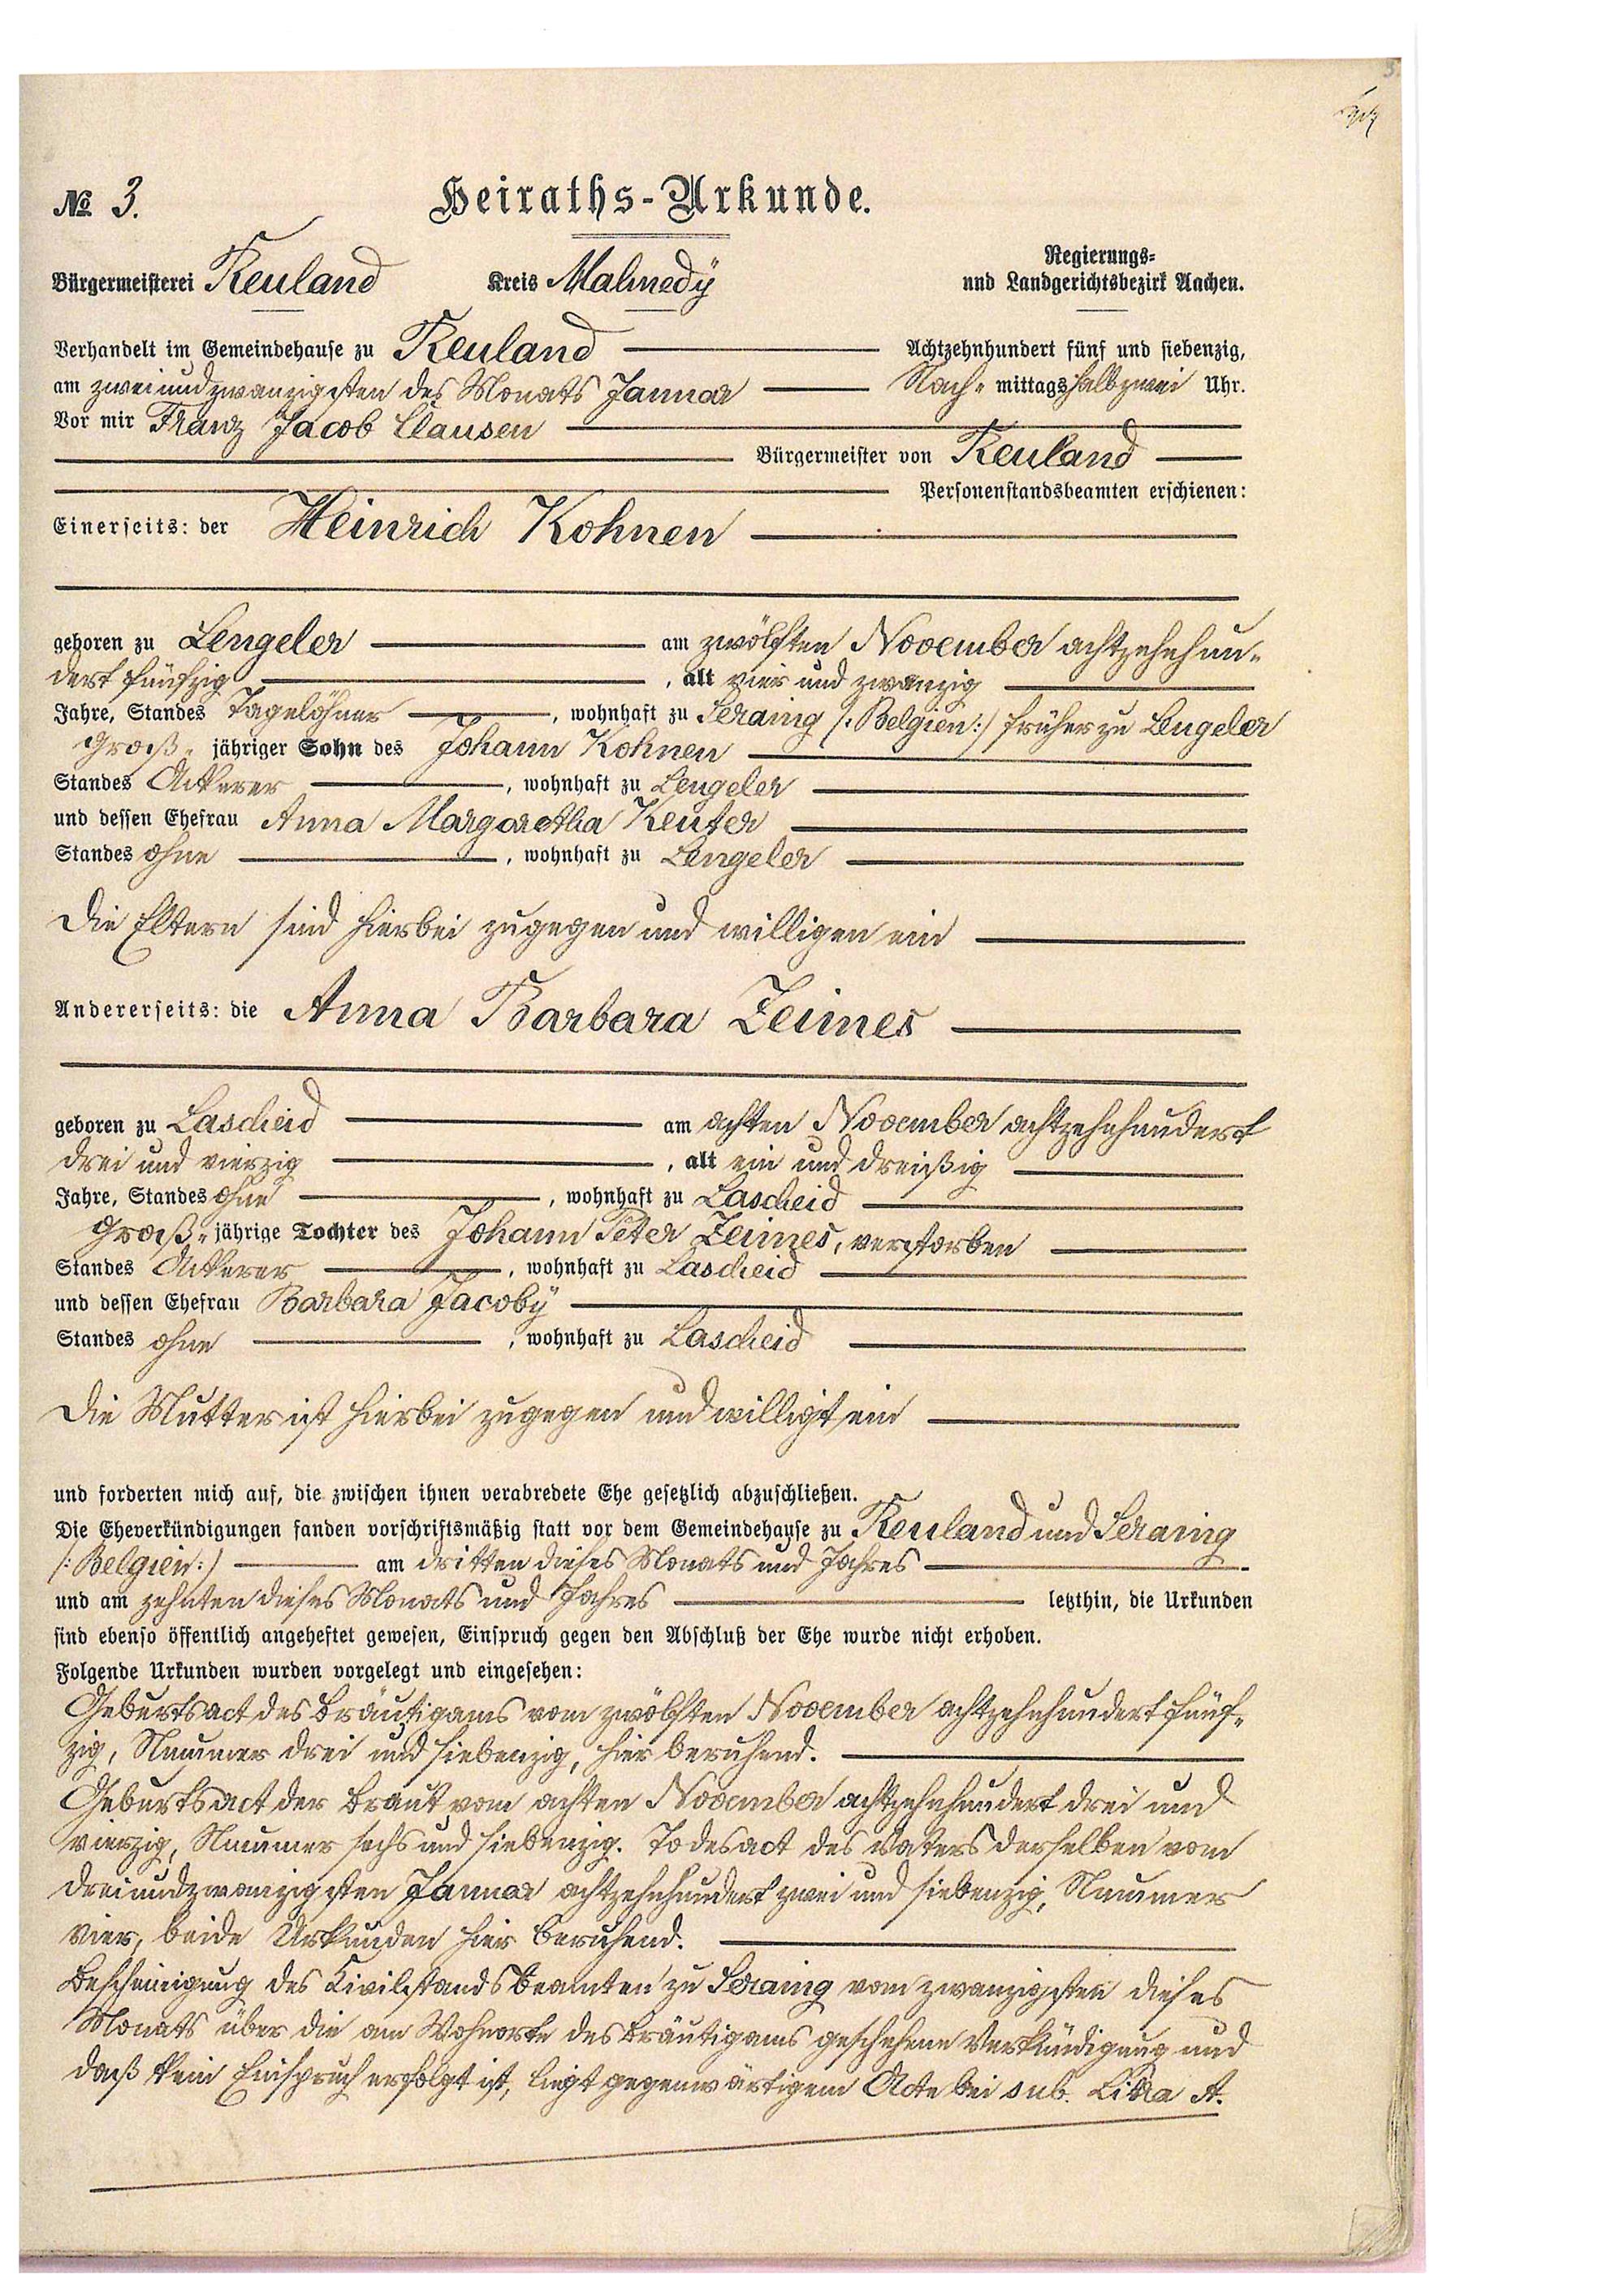 3.
No 3.
Heiraths-Urkunde.
Bürgermeisterei Reuland Kreis Malmedÿ
Regierungs-
und Landgerichtsbezirk Aachen.
Verhandelt im Gemeindehause zu Reuland Achtzehnhundert fünf und siebenzig,
am zweiundzwanzigsten des Monats Januar Nach- mittags halb zwei Uhr.
Vor mir Franz Jacob Clausen
Bürgermeister von Reuland
Personenstandsbeamten erschienen:
Einerseits: der Heinrich Kohnen
geboren zu Lengeler am zwölften November achtzehnhun-
dert fünfzig, alt vier und zwanzig
Jahre, Standes Tagelöhner, wohnhaft zu Seraing /: Belgien :/ früher zu Lengeler
groß- jähriger Sohn des Johann Kohnen
Standes Ackerer, wohnhaft zu Lengeler
und dessen Ehefrau Anna Margaretha Keufer
Standes ohne, wohnhaft zu Lengeler
Die Eltern sind hierbei zugegen und willigen ein
Andererseits: die Anna Barbara Zeimes
geboren zu Lascheid am achten November achtzehnhundert
drei und vierzig, alt ein und dreißig
Jahre, Standes ohne, wohnhaft zu Lascheid
groß- jährige Tochter des Johann Peter Zeimes, verstorben
Standes Ackerer, wohnhaft zu Lascheid
und dessen Ehefrau Barbara Jacobÿ
Standes ohne, wohnhaft zu Lascheid
Die Mutter ist hierbei zugegen und willigt ein
und forderten mich auf, die zwischen ihnen verabredete Ehe gesetzlich abzuschließen.
Die Eheverkündigungen fanden vorschriftsmäßig statt vor dem Gemeindehause zu Reuland und Seraing
/: Belgien :/ am dritten dieses Monats und Jahres
und am zehnten dieses Monats und Jahres letzthin, die Urkunden
sind ebenso öffentlich angeheftet gewesen, Einspruch gegen den Abschluß der Ehe wurde nicht erhoben.
Folgende Urkunden wurden vorgelegt und eingesehen:
Geburtsact des Bräutigams vom zwölften November achtzehnhundert fünf-
zig, Nummer drei und siebenzig, hier beruhend.
Geburtsact der Braut vom achten November achtzehnhundert drei und
vierzig, Nummer sechs und siebenzig. Todesact des Vaters derselben vom
dreiundzwanzigsten Januar achtzehnhundert zwei und siebenzig, Nummer
vier, beide Urkunden hier beruhend.
Bescheinigung des Civilstandsbeamten zu Seraing vom zwanzigsten dieses
Monats über die am Wohnorte des Bräutigams geschehene Verkündigung und
daß kein Einspruch erfolgt ist, liegt gegenwärtigem Acte bei sub. Litra A.